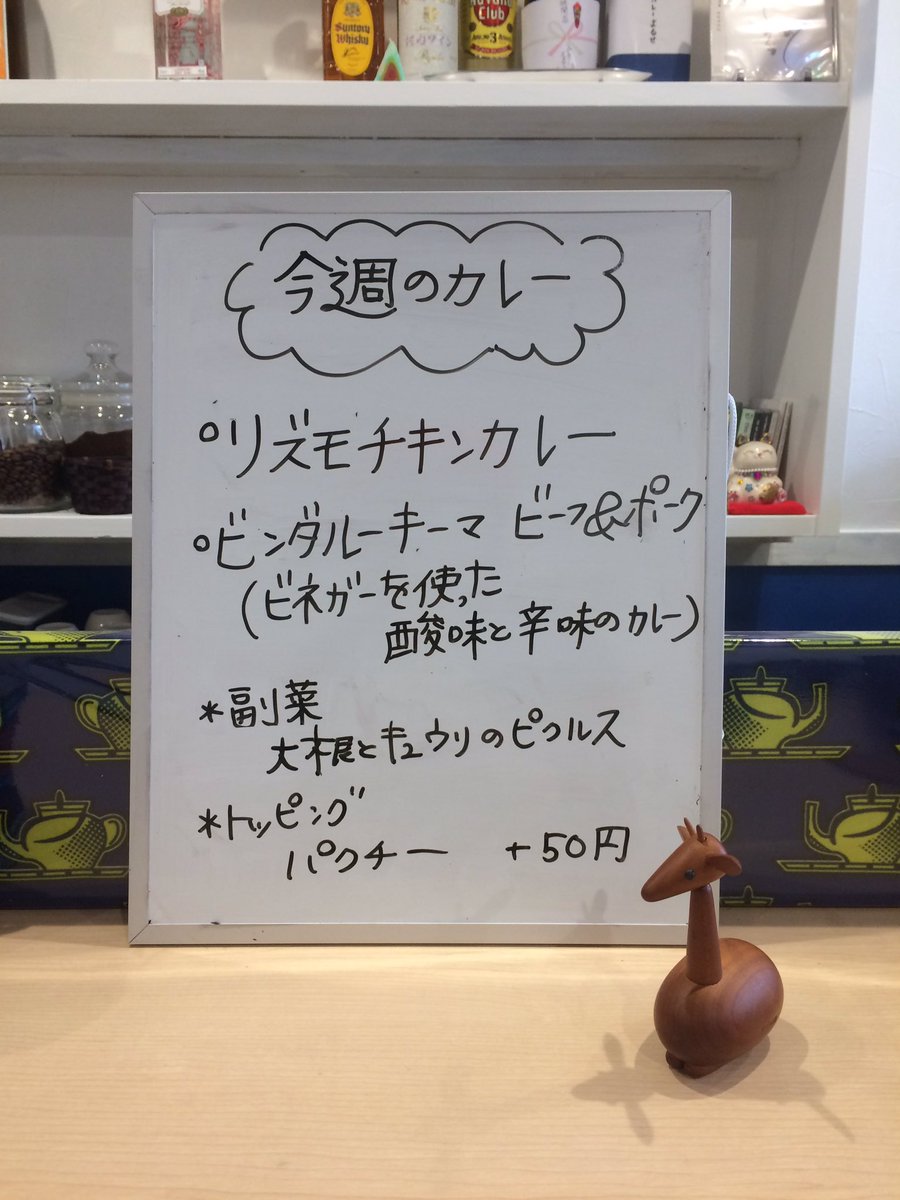 Suntory
Whisky
Havana
Club
No 3
今週のカレー
○リズモチキンカレー
○ビンダルーキーマ ビーフ&ポーク
(ビネガーを使った
酸味と辛味のカレー)
*副菜
大根とキュウリのピクルス
*トッピング
パクチー +50円